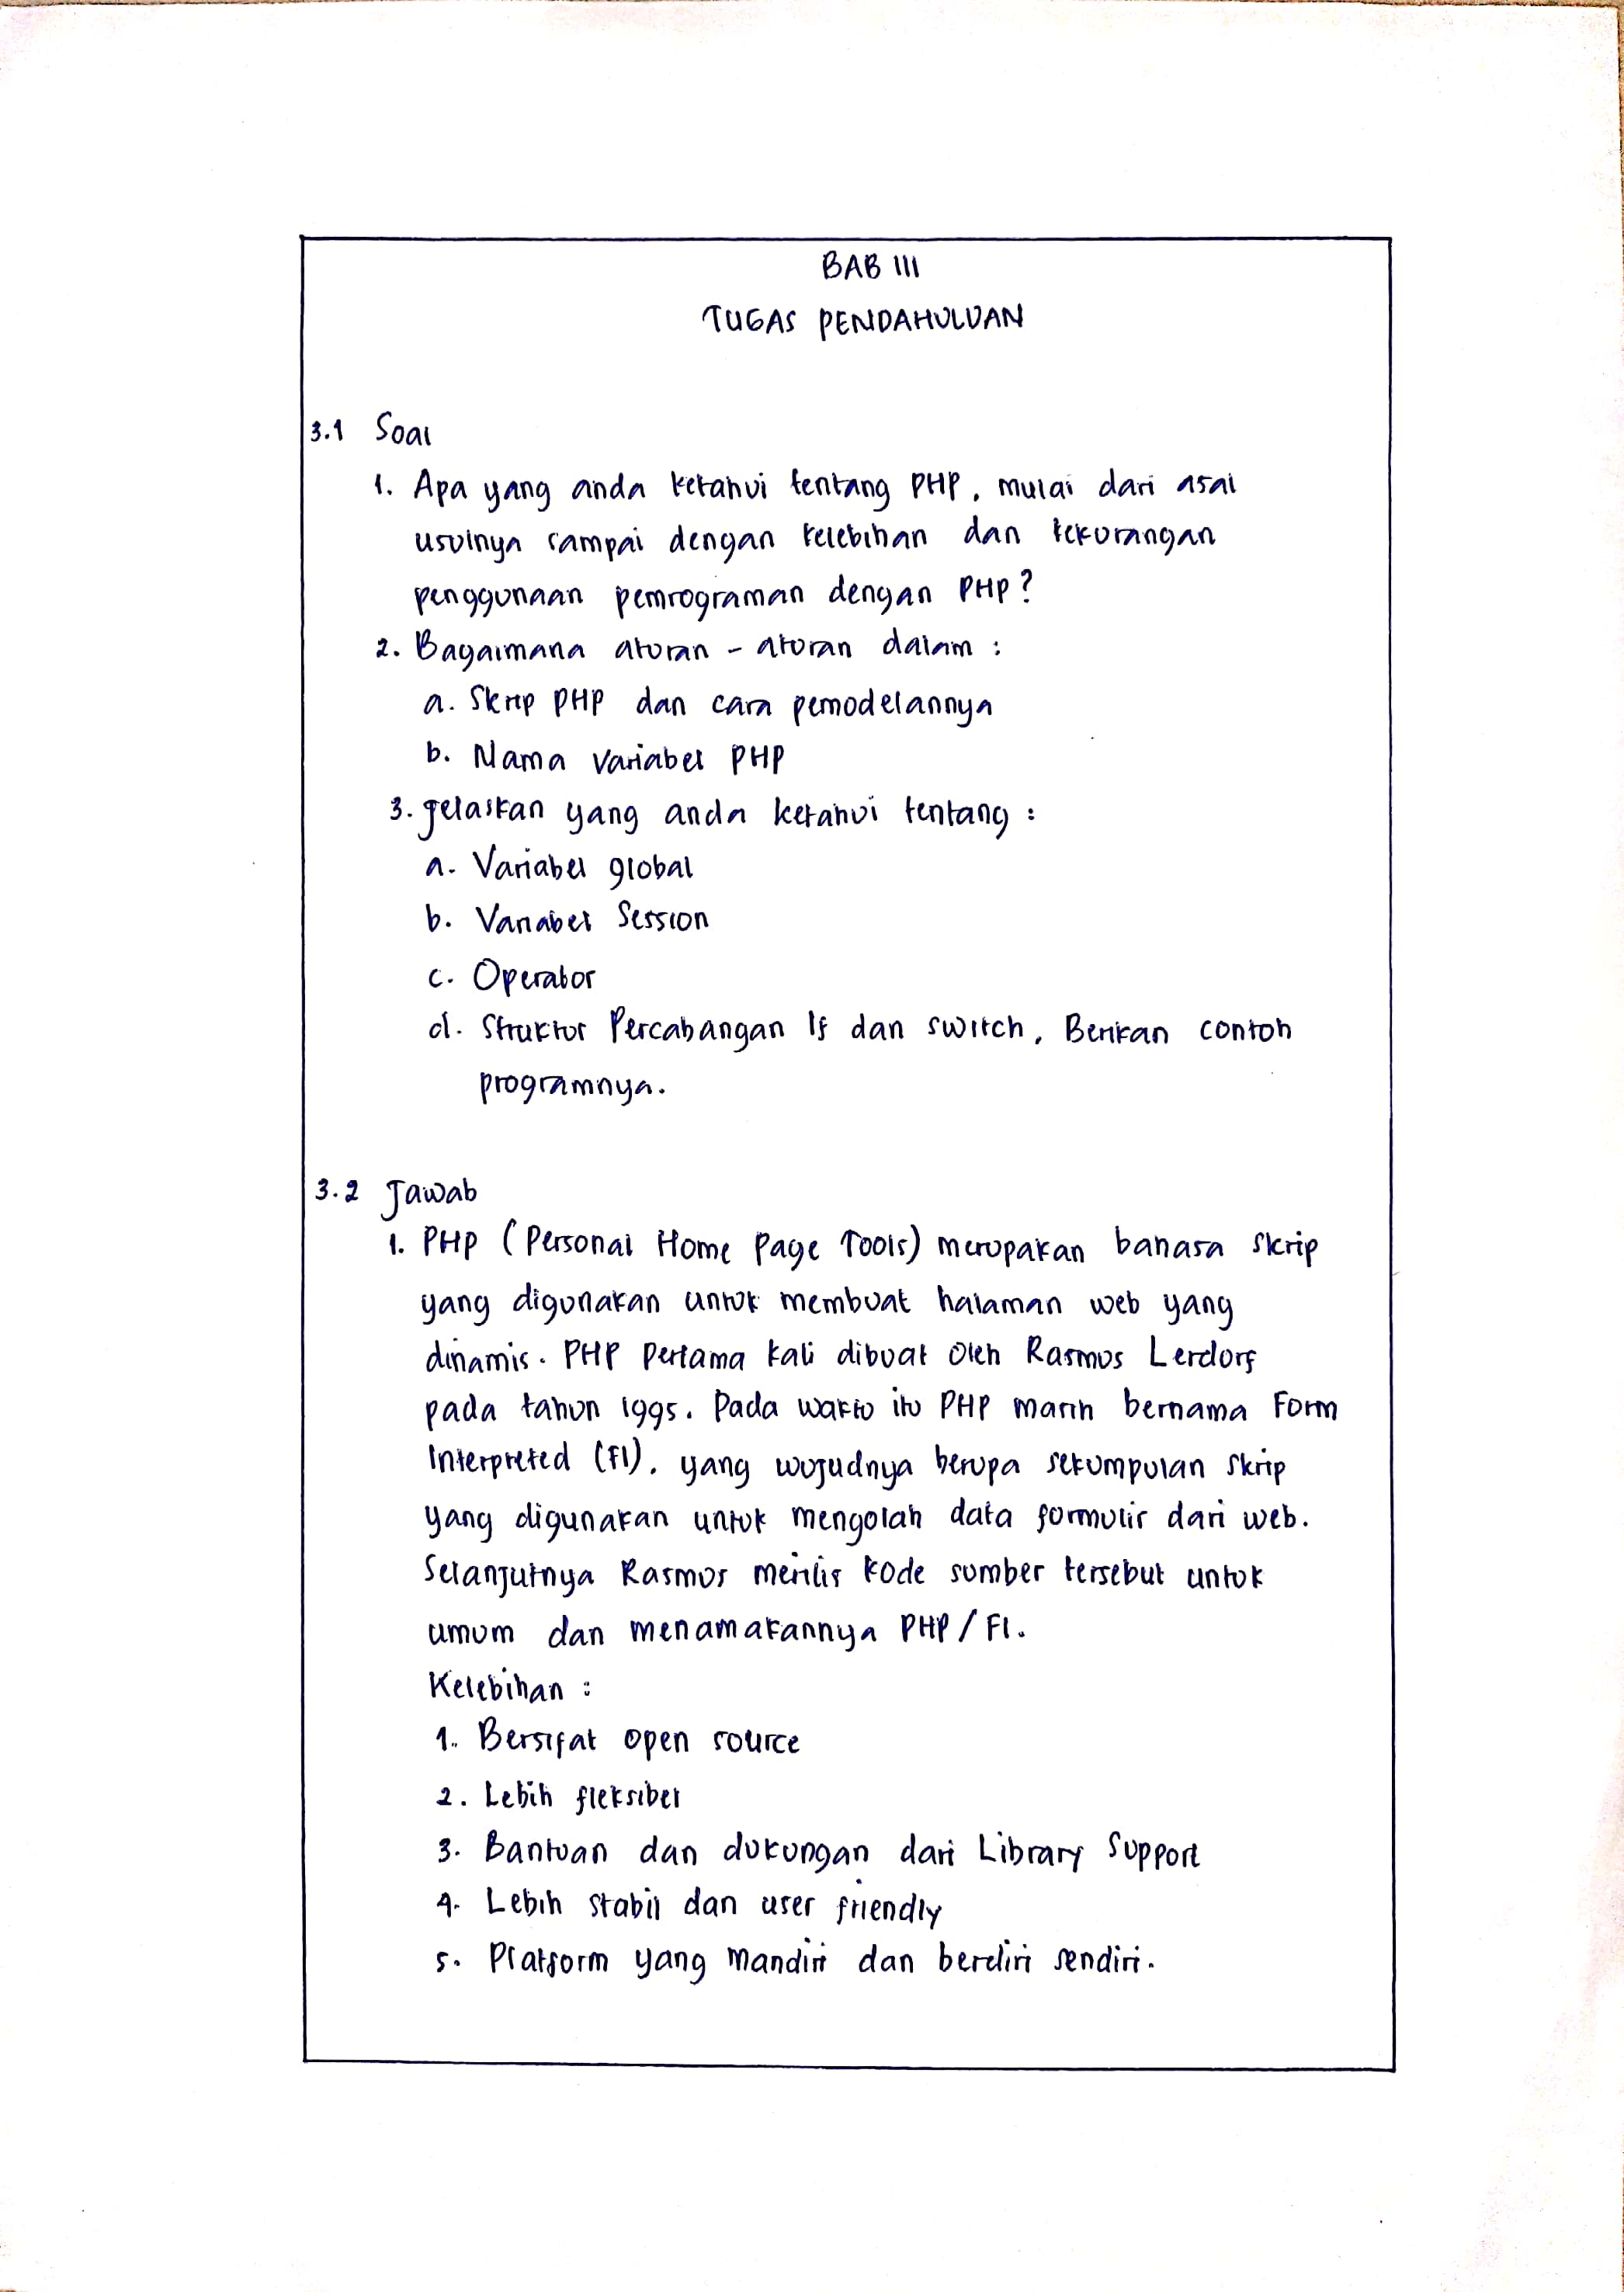 BAB III
TUGAS PENDAHULUAN
3.1 Soal
1. Apa yang anda ketahui tentang PHP, mulai dari asal
usulnya sampai dengan kelebihan dan kekurangan
penggunaan pemrograman dengan PHP?
2. Bagaimana aturan - aturan dalam :
a. Skrip PHP dan cara pemodelannya
b. Nama Variabel PHP
3. Jelaskan yang anda ketahui tentang :
a. Variabel global
b. Variabel Session
c. Operator
d. Struktur Percabangan If dan switch, Berikan contoh
programnya.
3.2 Jawab
1. PHP (Personal Home Page Tools) merupakan bahasa skrip
yang digunakan untuk membuat halaman web yang
dinamis. PHP Pertama kali dibuat oleh Rasmus Lerdorf
pada tahun 1995. Pada waktu itu PHP masih bernama Form
Interpreted (FI), yang wujudnya berupa sekumpulan skrip
yang digunakan untuk mengolah data formulir dari web.
Selanjutnya Rasmus merilis kode sumber tersebut untuk
umum dan menamakannya PHP/FI.
Kelebihan :
1. Bersifat open source
2. Lebih fleksibel
3. Bantuan dan dukungan dari Library Support
4. Lebih stabil dan user friendly
5. Platform yang Mandiri dan berdiri sendiri.